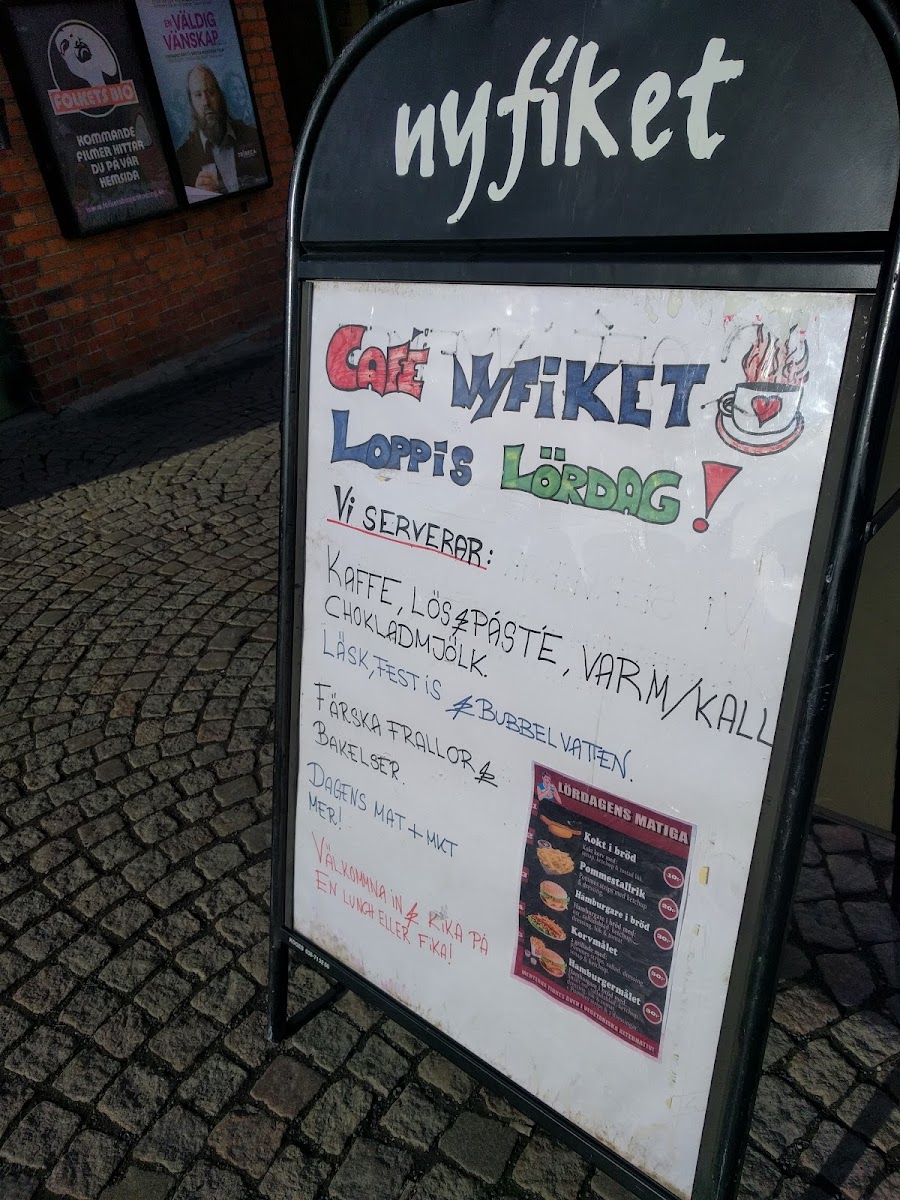 FOLKETS BIO
KOMMANDE
FILMER HITTAR
DU PÅ VÅR
HEMSIDA
EN VÄLDIG
VÄNSKAP
TRIBECA
nyfiket
CAFÉ NYFIKET
LOPPIS LÖRDAG!
Vi SERVERAR:
KAFFE, LÖS & PÅSTE, VARM/KALL
CHOKLADMJÖLK
LÄSK, FESTIS & BUBBELVATTEN.
FÄRSKA FRALLOR &
BAKELSER
DAGENS MAT + MKT
MER!
VÄLKOMMNA IN & KIKA PÅ
EN LUNCH ELLER FIKA!
LÖRDAGENS MATIGA
Kokt i bröd
10:-
Pommestallrik
Hamburgare i bröd
30:-
Korvmålet
50:-
Hamburgermålet
50:-